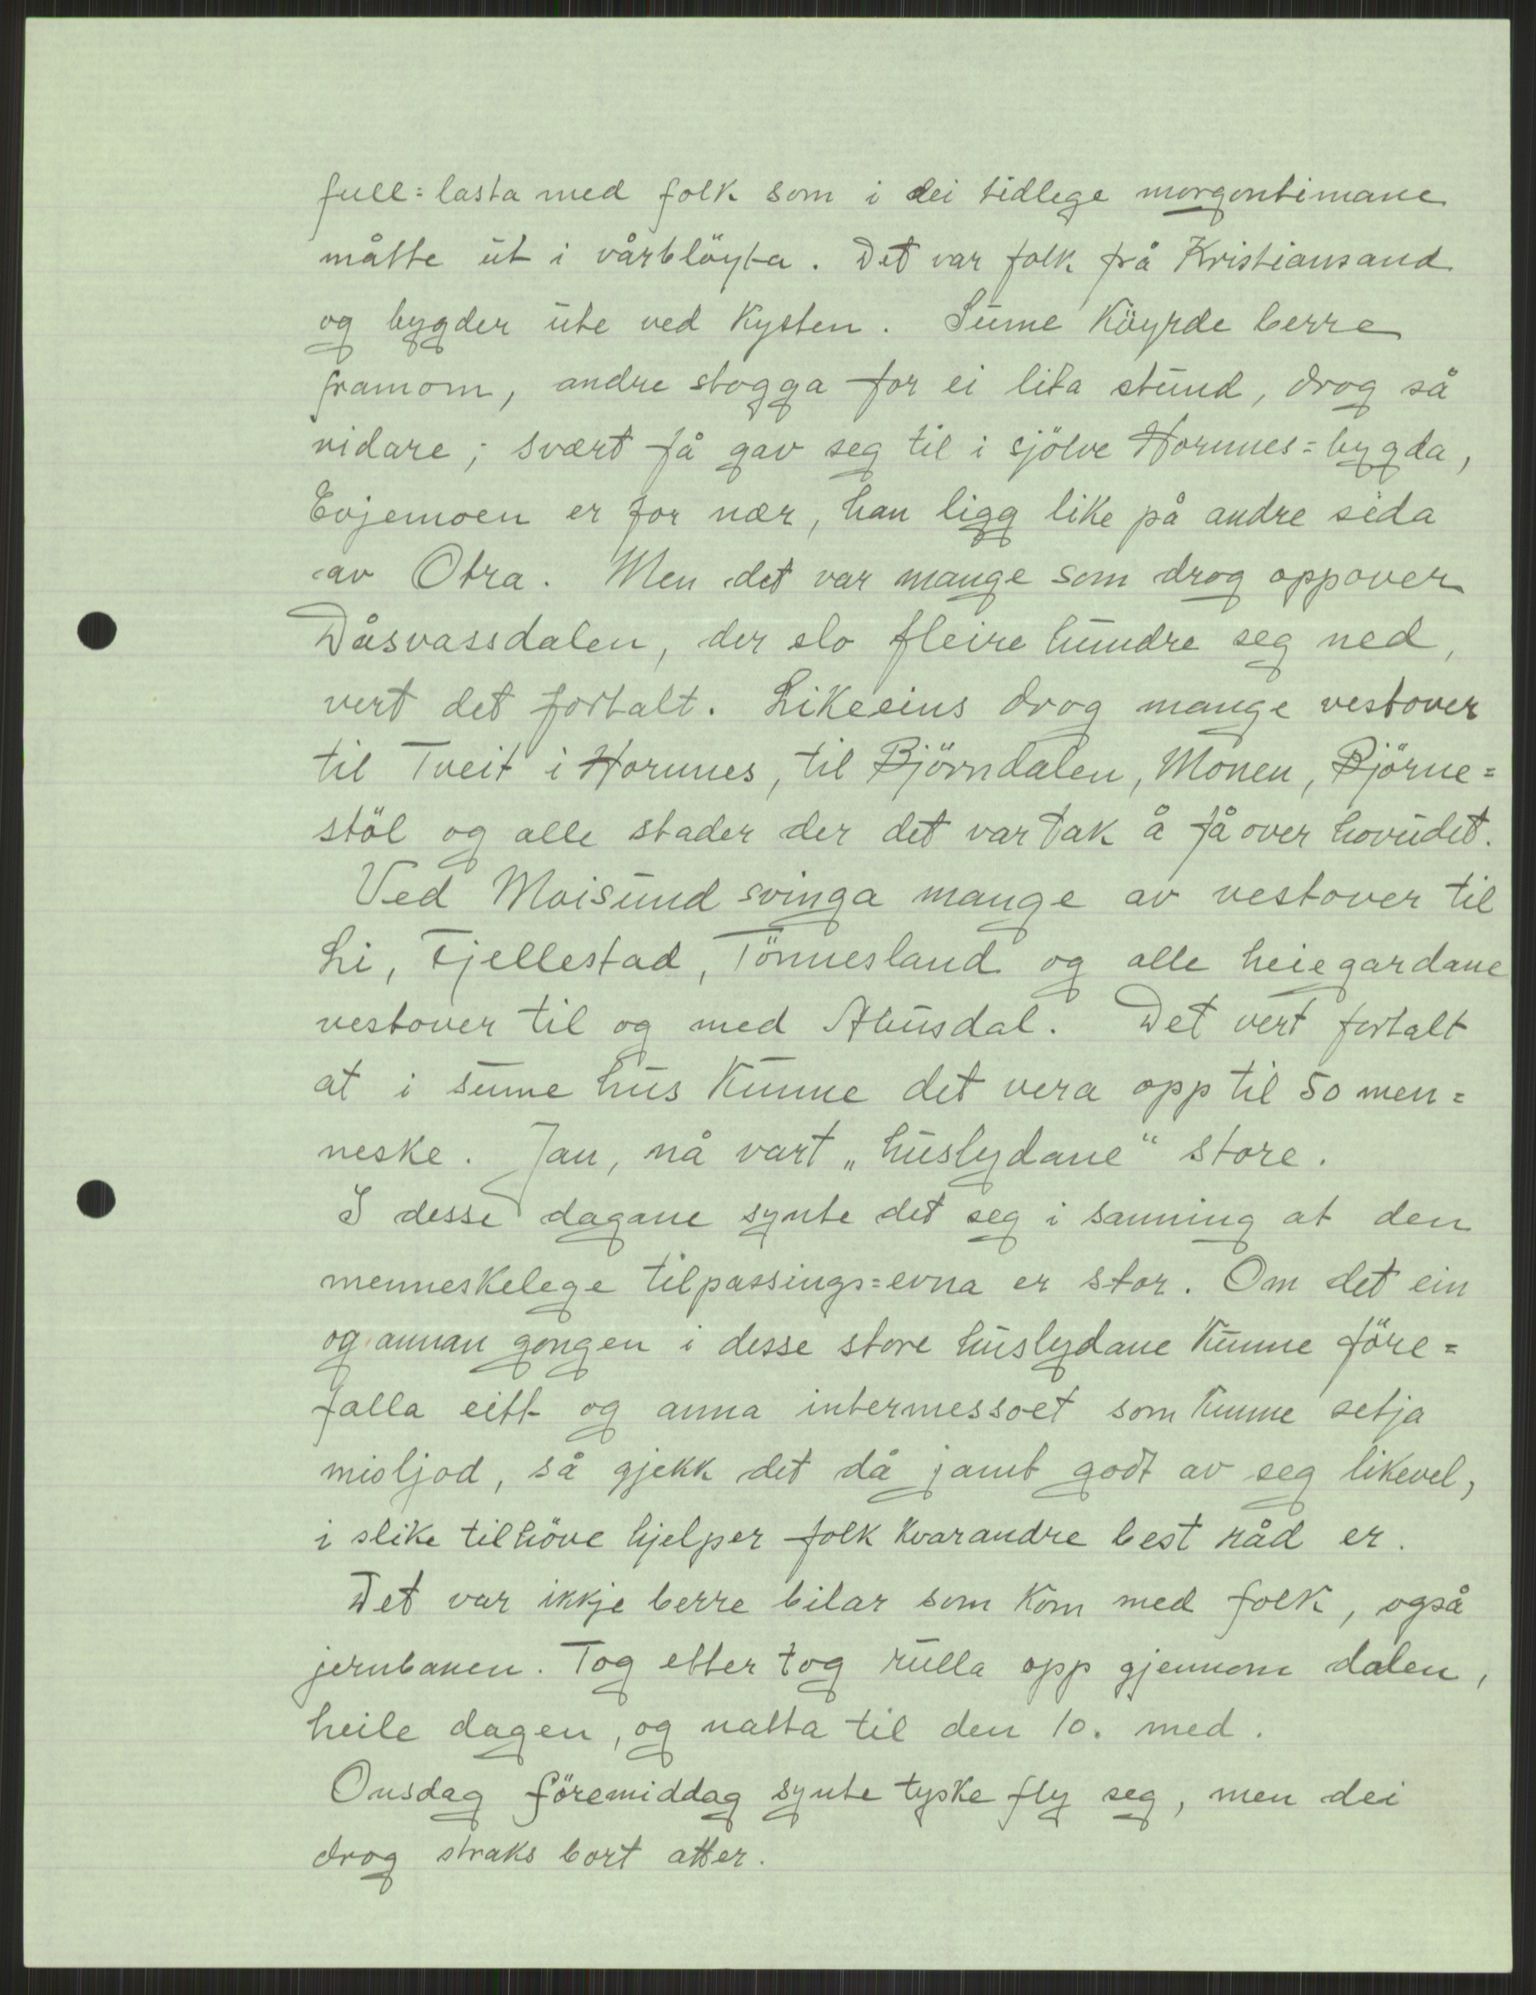 full=lasta med folk som i dei tidlege morgontimane
måtte ut i vårbløyta. Det var folk frå Kristiansand
og bygder ute ved kysten. Sume köyrde berre
framom, andre stogga for ei lita stund, drog så
vidare; svært få gav seg til i sjölve Hornnes=bygda,
Evjemoen er for nær, han ligg like på andre sida
av Otra. Men det var mange som drog oppover
Dåsvassdalen, der slo fleire hundre seg ned,
vert det fortalt. Likeeins drog mange vestover
til Tveit i Hornnes, til Björndalen, Monen, Björne=
stöl og alle stader der det var tak å få over hovudet.
Ved Moisund svinga mange av vestover til
Li, Fjellestad, Tönnesland og alle heiegardane
vestover til og med Abusdal. Det vert fortalt
at i sume hus kunne det vera opp til 50 men=
neske. Jau, nå vart „huslydane“ store.
I desse dagane synte det seg i sanning at den
menneskelege tilpassings=evna er stor. Om det ein
og annan gongen i desse store huslydane kunne före=
falla eitt og anna intermessoet som kunne setja
misljod, så gjekk det då jamt godt av seg likevel,
i slike tilhöve hjelper folk kvarandre best råd er.
Det var ikkje berre bilar som kom med folk, også
jernbanen. Tog etter tog rulla opp gjennom dalen,
heile dagen, og natta til den 10. med.
Onsdag föremiddag synte tyske fly seg, men dei
drog straks bort atter.